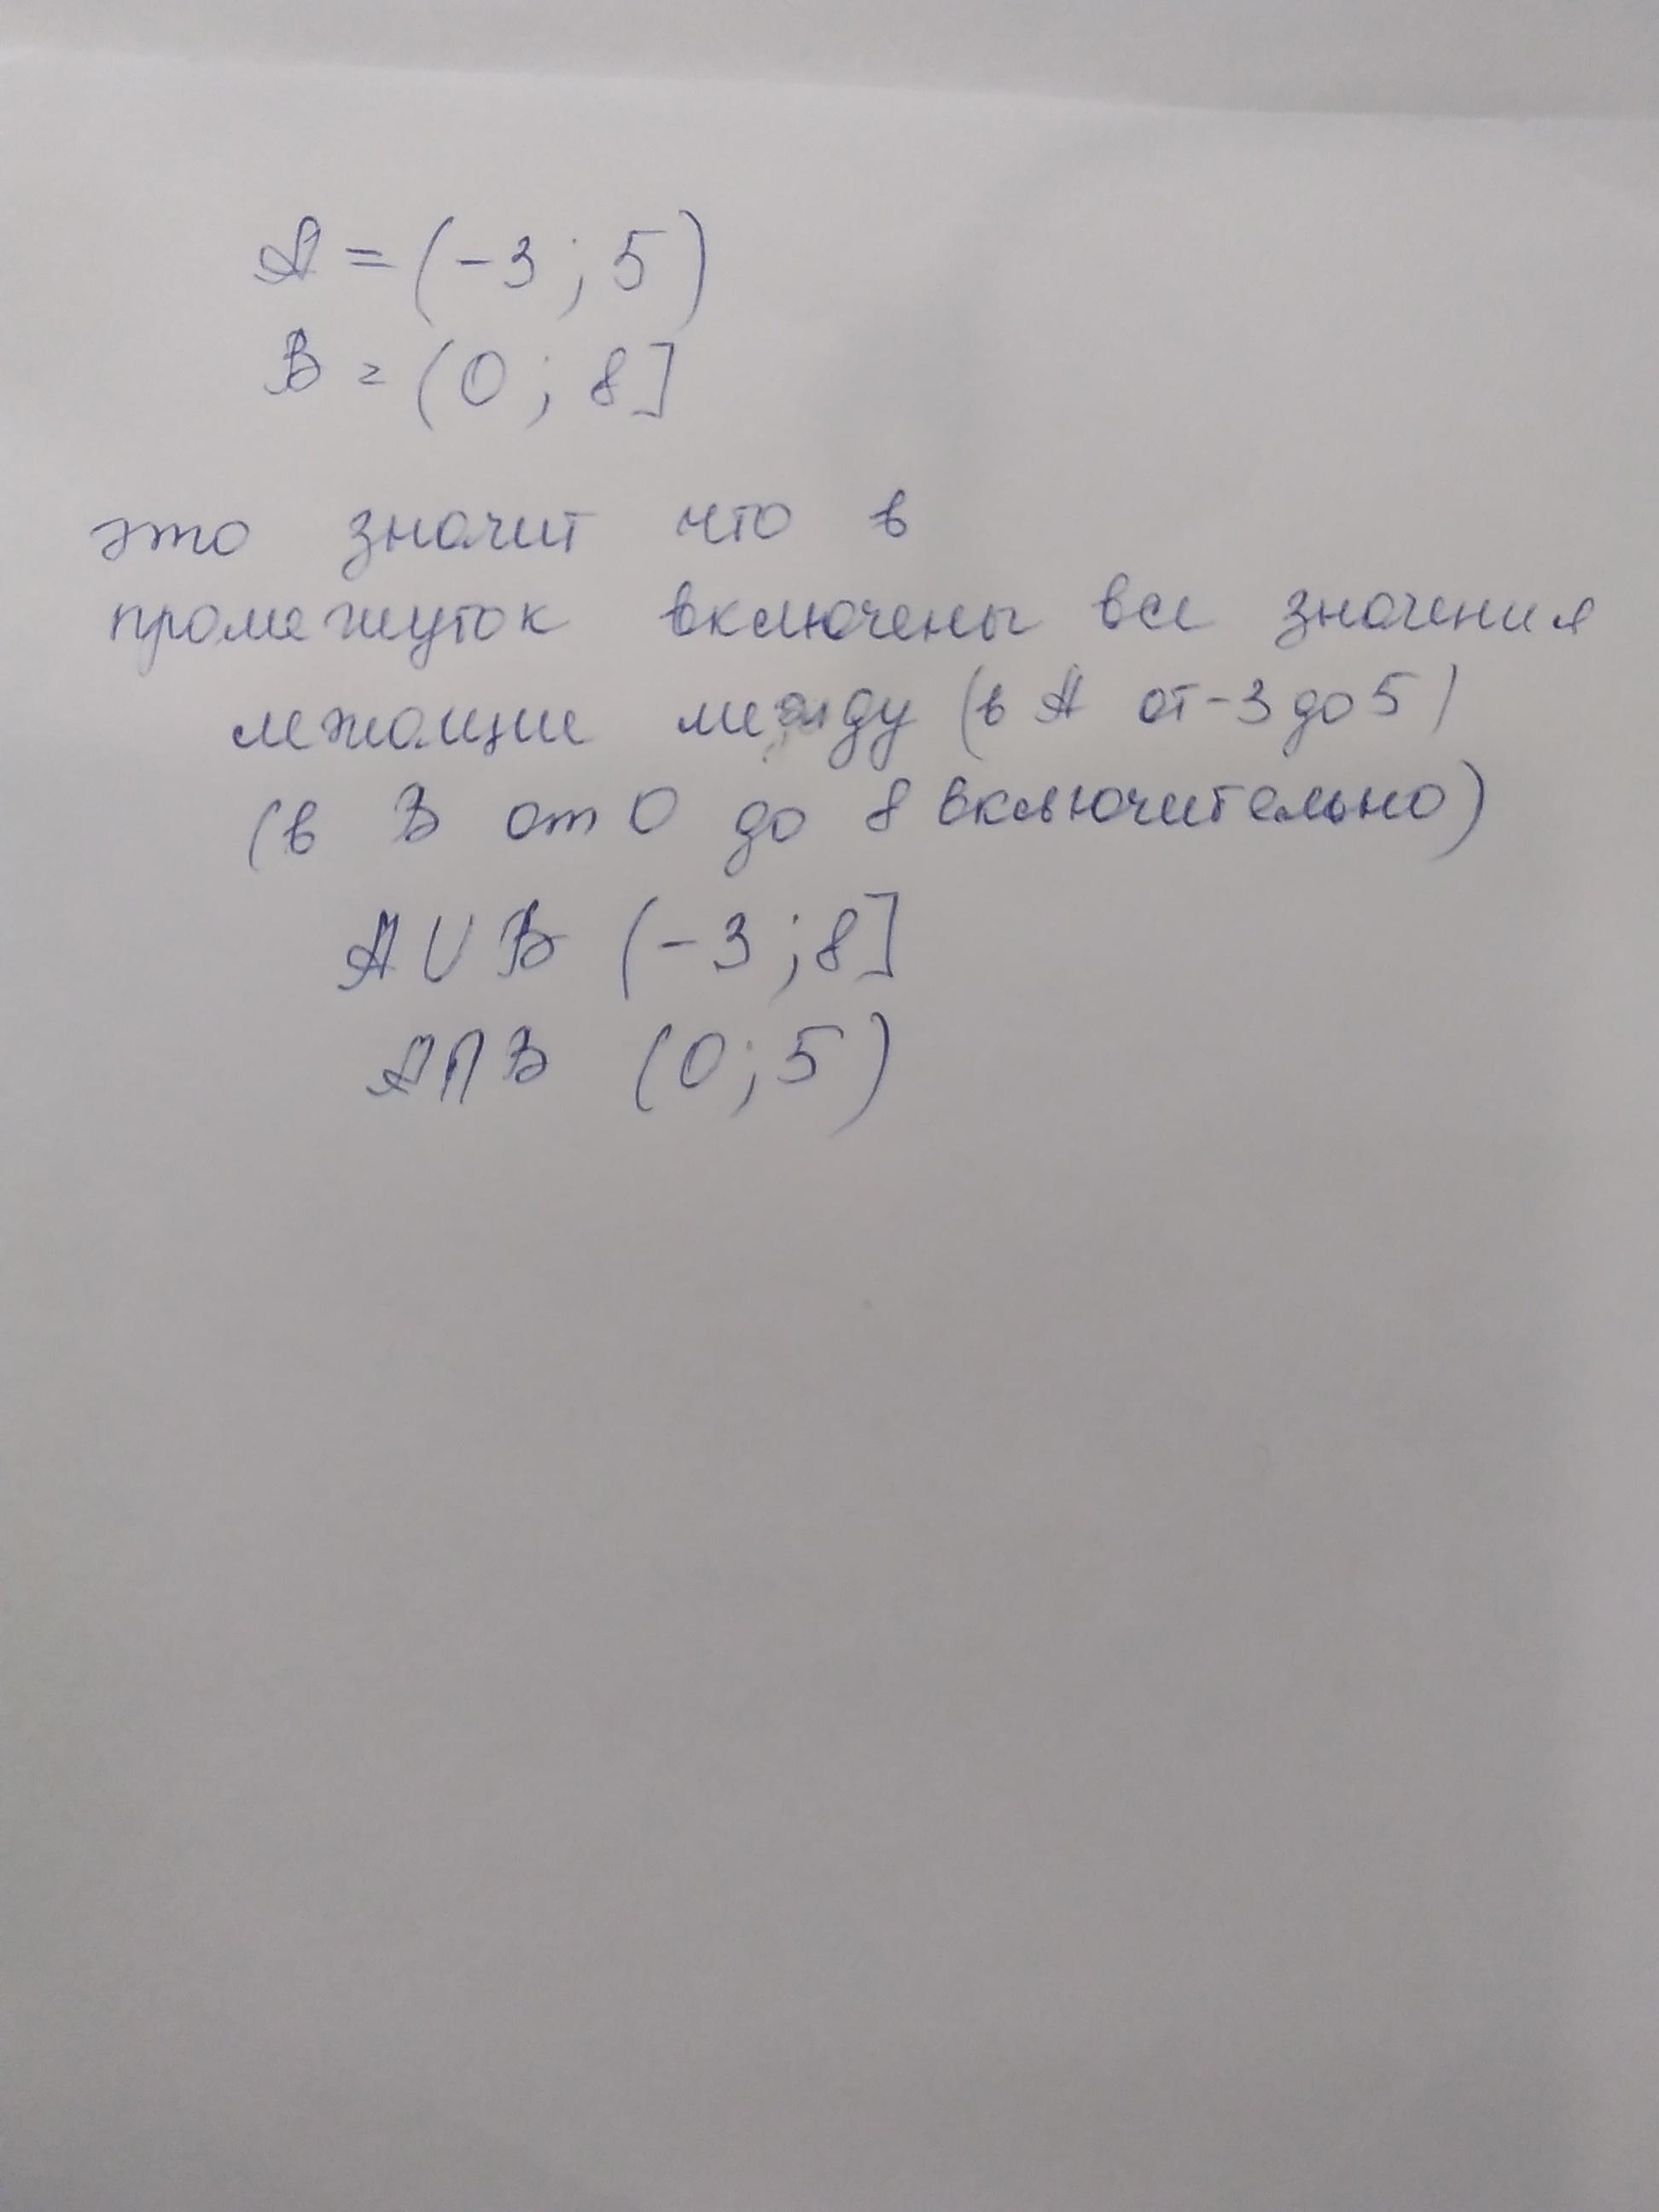 A = (-3; 5)
B = (0; 8]
это значит что в
промежуток включены все значения
лежащие между (в A от -3 до 5)
(в B от 0 до 8 включительно)
A ∪ B (-3; 8]
A ∩ B (0; 5)